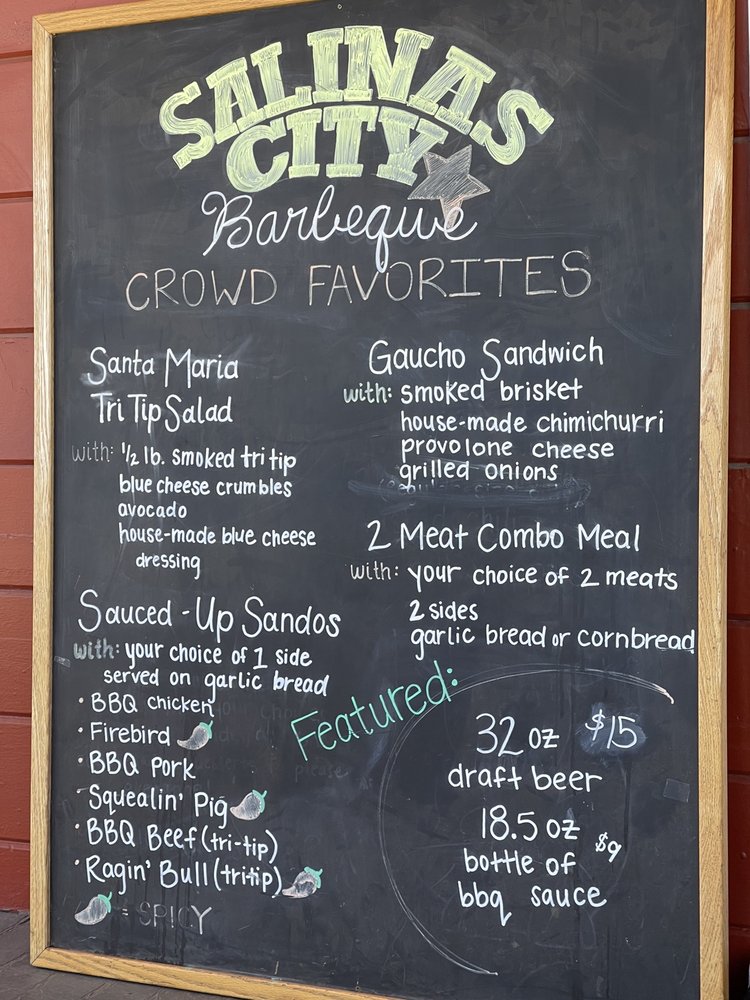 SALINAS
CITY
Barbeque
CROWD FAVORITES
Santa Maria
Tri Tip Salad
with: 1/2 lb. smoked tri tip
blue cheese crumbles
avocado
house-made blue cheese
dressing
Sauced-Up Sandos
with: your choice of 1 side
served on garlic bread
· BBQ chicken
· Firebird
· BBQ Pork
· Squealin' Pig
· BBQ Beef (tri-tip)
· Ragin' Bull (tritip)
= SPICY
Gaucho Sandwich
with: smoked brisket
house-made chimichurri
provolone cheese
grilled onions
2 Meat Combo Meal
with: your choice of 2 meats
2 sides
garlic bread or cornbread
Featured:
32 oz $15
draft beer
18.5 oz
bottle of $9
bbq sauce